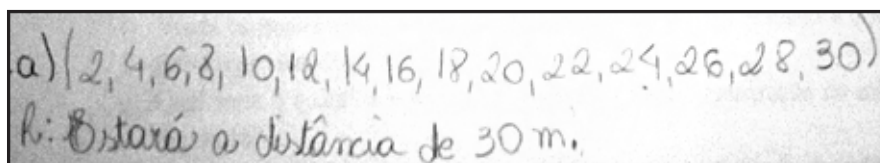 a) (2, 4, 6, 8, 10, 12, 14, 16, 18, 20, 22, 24, 26, 28, 30)
R: Estará a distância de 30 m.